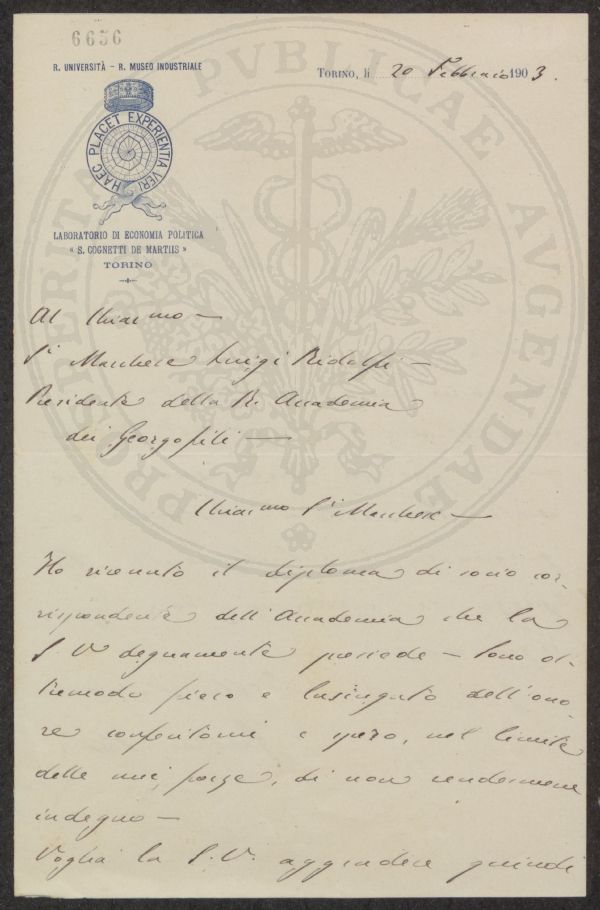 6656
R. UNIVERSITÀ - R. MUSEO INDUSTRIALE
TORINO, li 20 Febbraio 1903.
HAEC PLACET EXPERIENTIA VERI
LABORATORIO DI ECONOMIA POLITICA
« S. COGNETTI DE MARTIIS »
TORINO
PROSPERITATI PVBLICAE AVGENDAE
Al Chiarmo —
Sr Marchese Luigi Ridolfi —
Presidente della R. Accademia
dei Georgofili —
Chiarmo Sr Marchese —
Ho ricevuto il diploma di socio cor-
rispondente dell'Accademia che la
S. V. degnamente presiede — Sono ol-
tremodo fiero e lusingato dell'ono-
re conferitomi e spero, nel limite
delle mie forze, di non rendermene
indegno —
Voglia la S. V. aggradire quindi